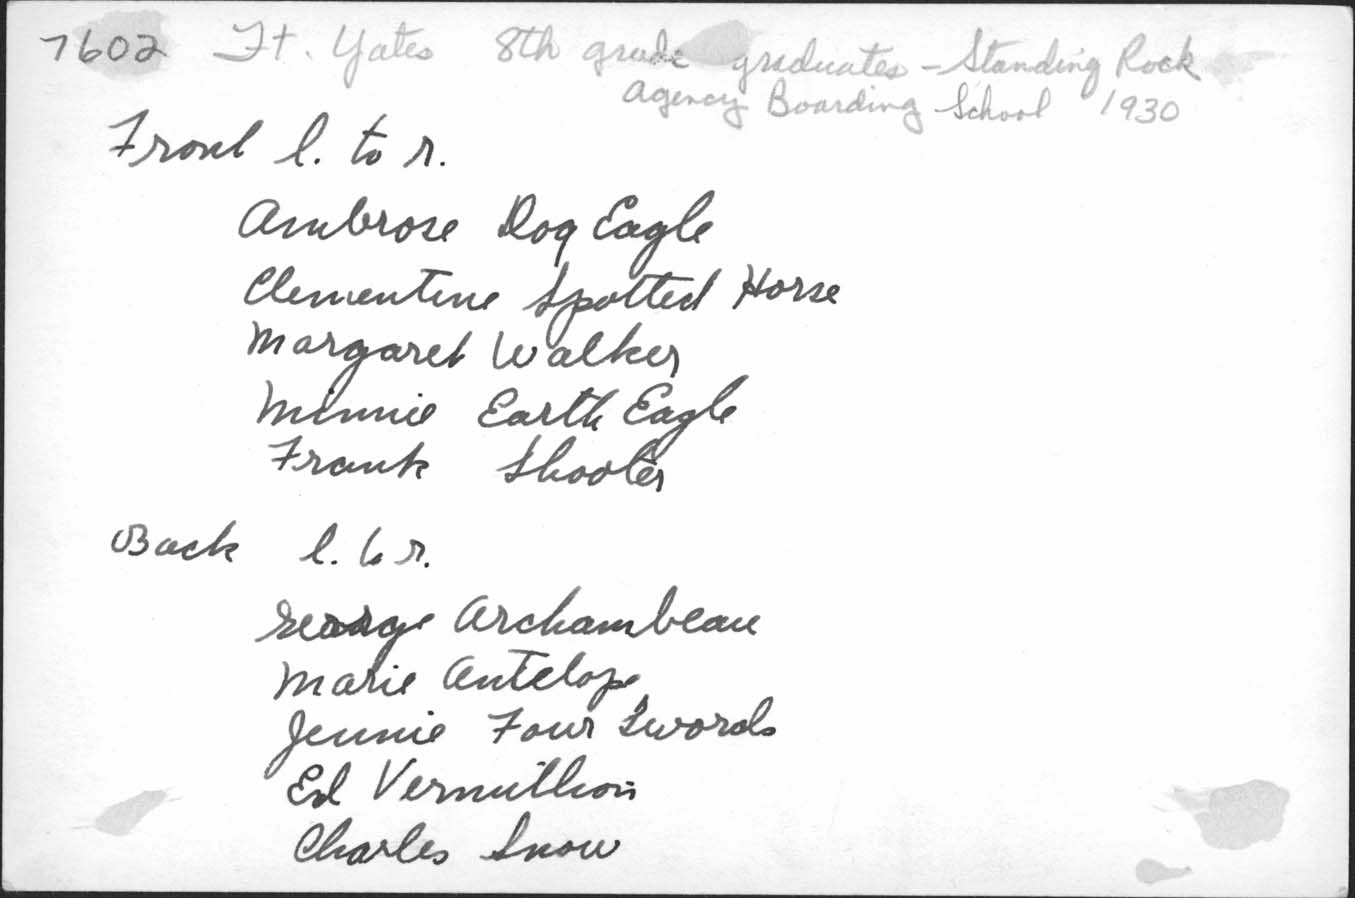 7602 Ft. Yates 8th grade graduates - Standing Rock
Agency Boarding School 1930
Front l. to r.
Ambrose Dog Eagle
Clementine Spotted Horse
Margaret Walker
Minnie Earth Eagle
Frank Shooter
Back l. to r.
George Archambeau
Marie Antelope
Jennie Four Swords
Ed Vermillion
Charles Snow